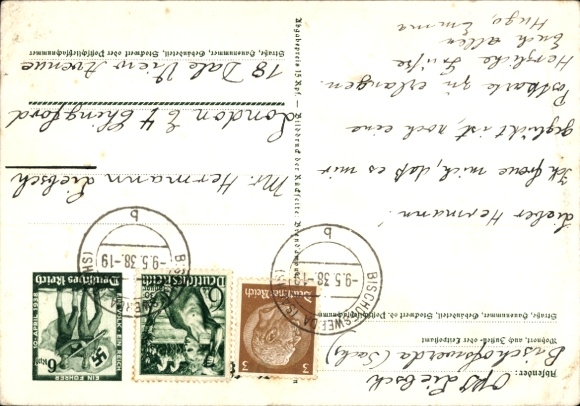 Absender:
Liebsch
Bischofswerda (Sachs)
Wohnort, auch Zustell- oder Leitpostamt
Straße, Hausnummer, Gebäudeteil, Stockwerk od. Postschließfachnummer
Lieber Hermann!
Ich freue mich, daß es mir
geglückt ist, noch eine
Postkarte zu erlangen.
Herzliche Grüße
Euch allen
Hugo, Emma
Deutsches Reich
3
Deutsches Reich
6
10. APRIL 1938
EIN VOLK EIN REICH
EIN FÜHRER
6
Deutsches Reich
BISCHOFSWERDA
-9.5.38.-19
b
BISCHOFSWERDA
-9.5.38.-19
b
Mr Hermann Liebsch
London E4 Chingford
18 Dale View Avenue
Straße, Hausnummer, Gebäudeteil, Stockwerk oder Postschließfachnummer